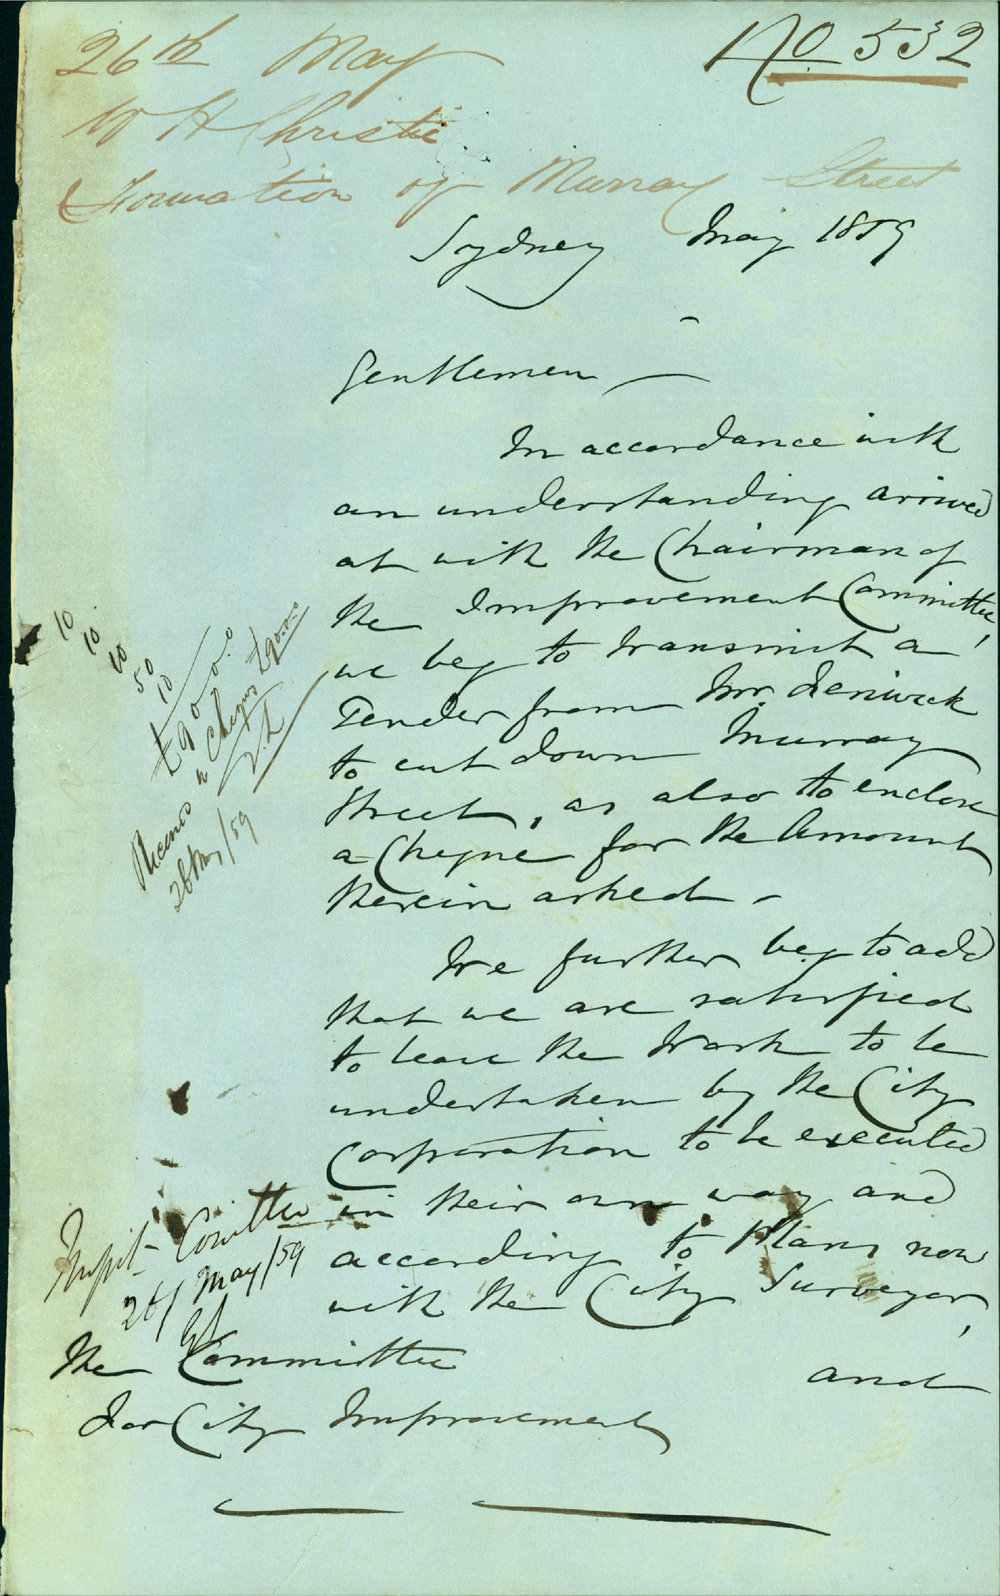 26th May
No 532
W H Christie
Formation of Murray Street
Sydney May 1859
Gentlemen
In accordance with
an understanding arrived
at with the Chairman of
the Improvement Committee,
we beg to transmit a
Tender from Mr. Fenwick
to cut down Murray
Street, as also to enclose
a Cheque for the Amount
therein asked -
We further beg to add
that we are satisfied
to leave the Work to be
undertaken by the City
Corporation to be executed
in their own way and
according to Plans now
with the City Surveyor,
and
10
10
10
50
10
£90.0.0
Cheques £90.0.0
26 May/59
Committee
26/ May/59
The Committee
For City Improvement